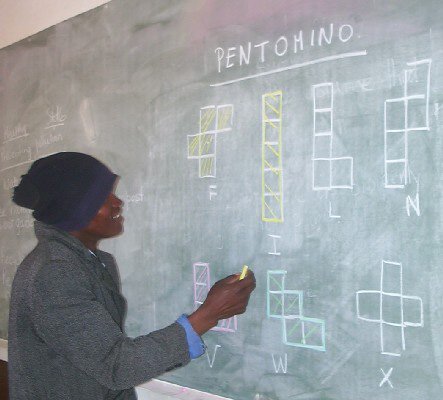 PENTOMINO.
F I L N
V W X